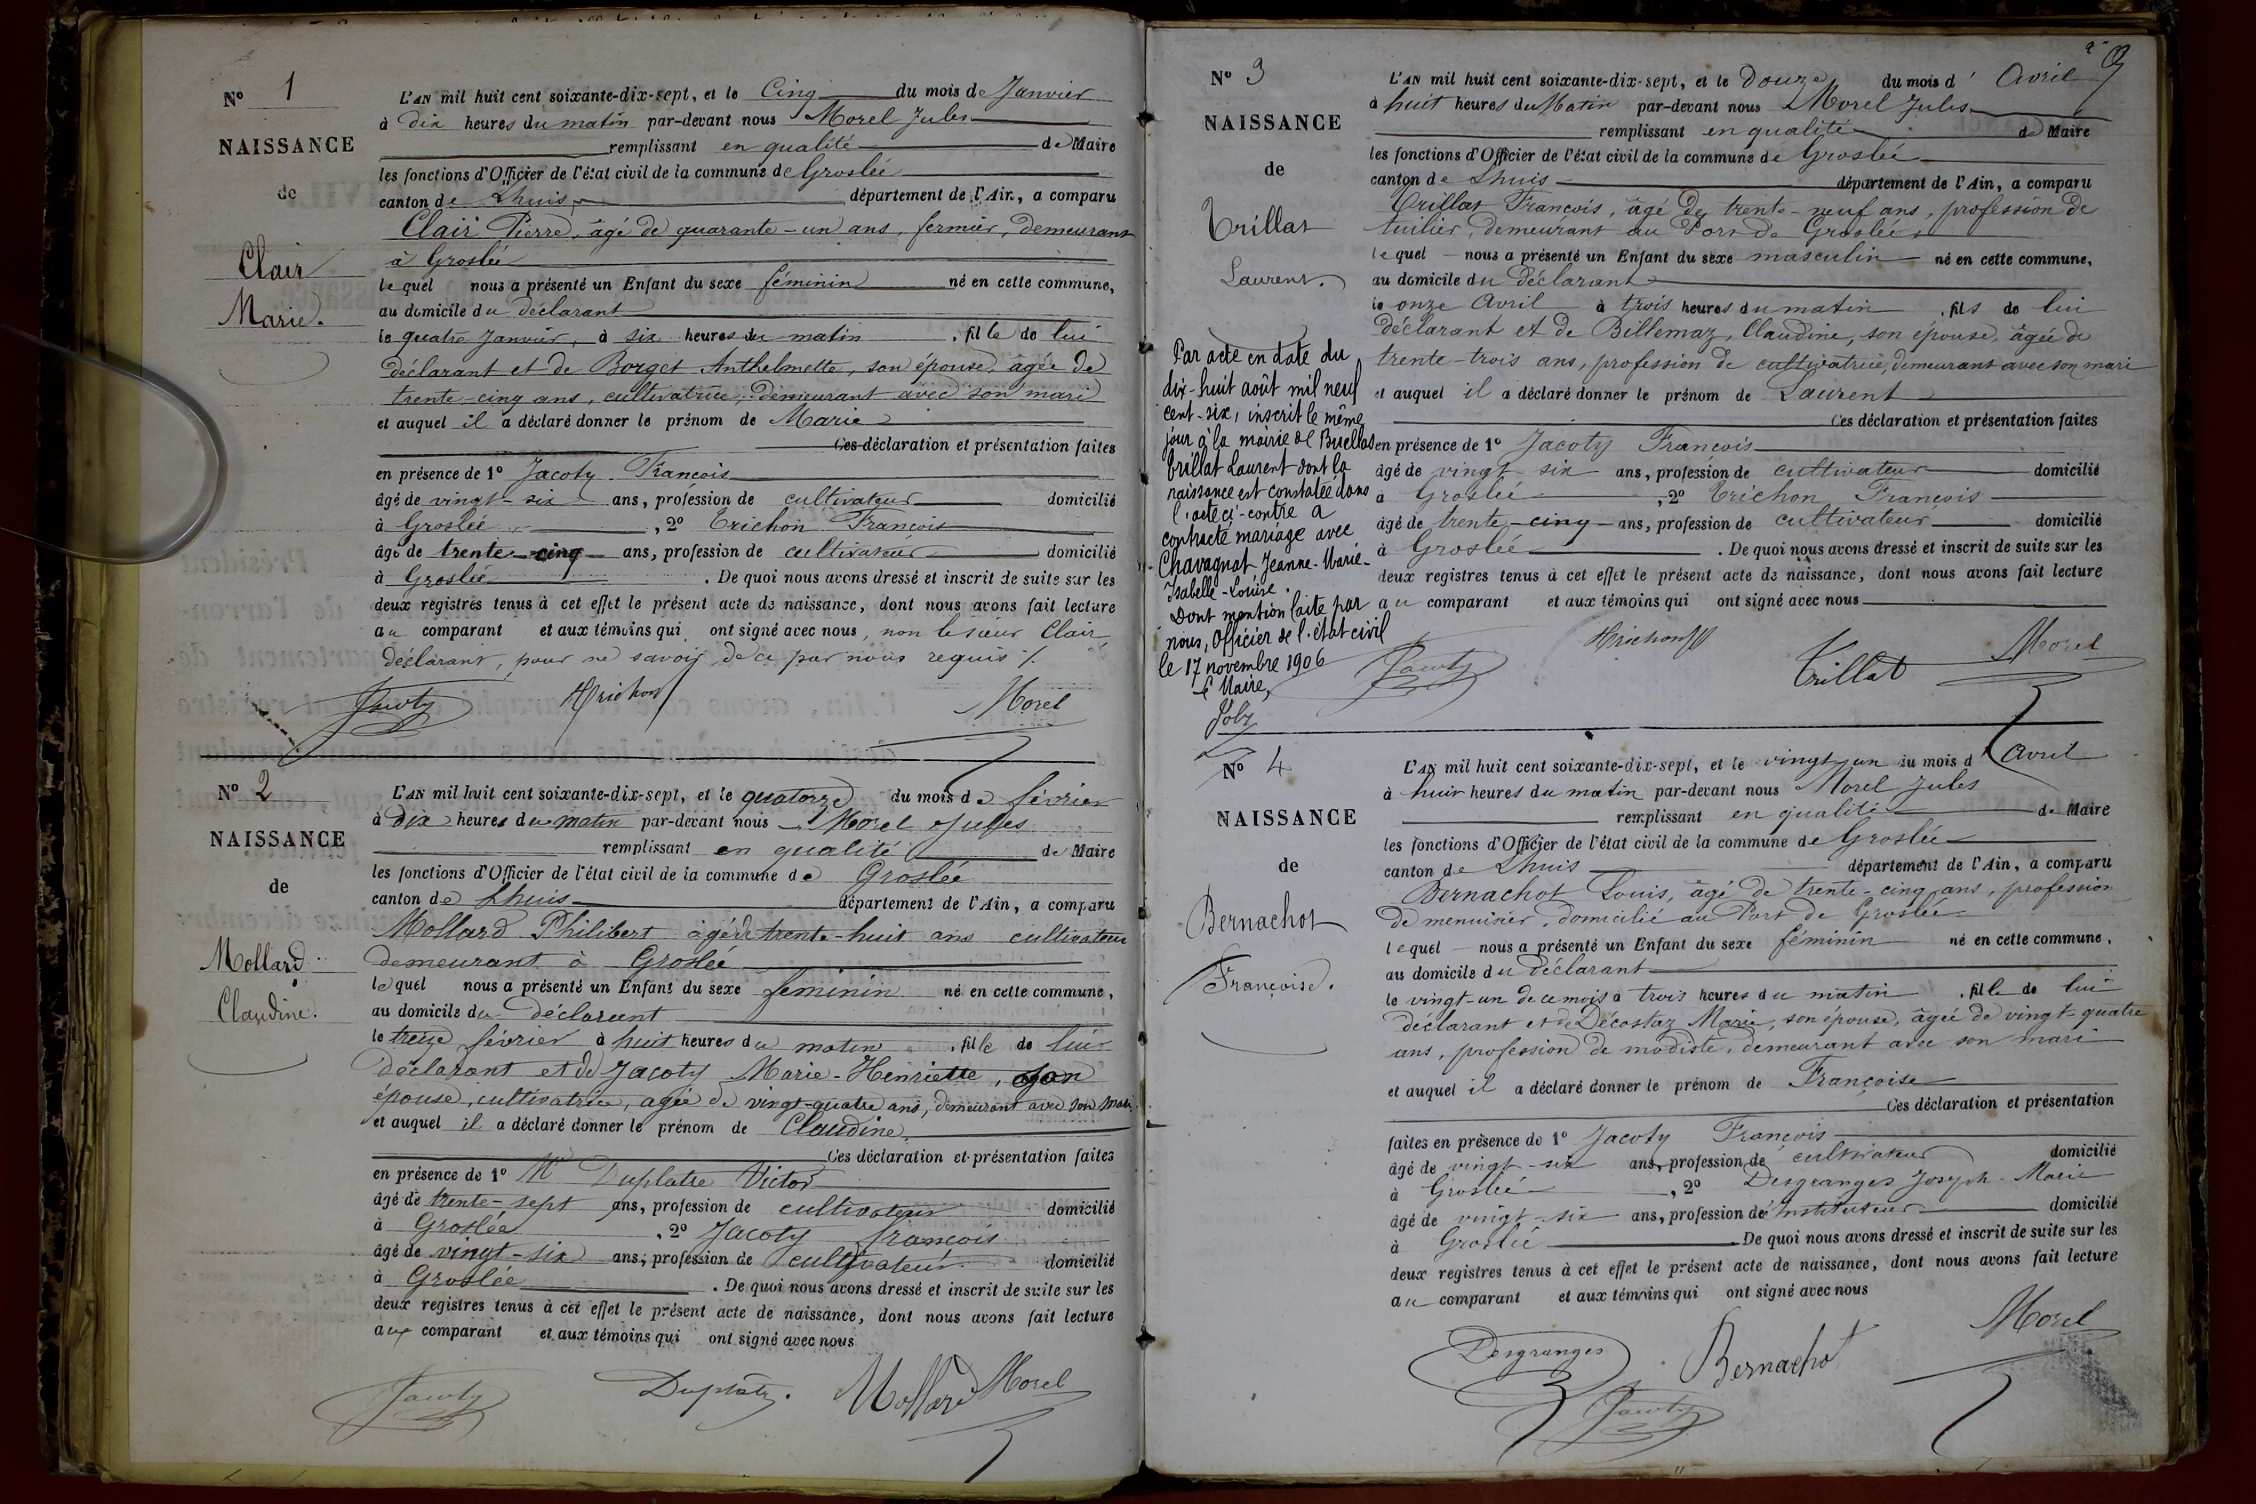 Nº 1
NAISSANCE
de
Clair
Marie.
L'AN mil huit cent soixante-dix-sept, et le Cinq du mois de Janvier
à dix heures du matin par-devant nous Morel Jules
remplissant en qualité de Maire
les fonctions d'Officier de l'état civil de la commune de Groslée
canton de Lhuis département de l'Ain, a comparu
Clair Pierre, âgé de quarante-un ans, fermier, demeurant
à Groslée
lequel nous a présenté un Enfant du sexe féminin né en cette commune,
au domicile du déclarant
le quatre Janvier, à six heures du matin, fille de lui
déclarant et de Borget Anthelmette, son épouse, âgée de
trente-cinq ans, cultivatrice, demeurant avec son mari
et auquel il a déclaré donner le prénom de Marie
Ces déclaration et présentation faites
en présence de 1º Jacoty François
âgé de vingt-six ans, profession de cultivateur domicilié
à Groslée, 2º Trichon François
âgé de trente-cinq ans, profession de cultivateur domicilié
à Groslée. De quoi nous avons dressé et inscrit de suite sur les
deux registres tenus à cet effet le présent acte de naissance, dont nous avons fait lecture
au comparant et aux témoins qui ont signé avec nous, non le sieur Clair
déclarant, pour ne savoir de ce par nous requis /.
Jacoty Trichon Morel
Nº 2
NAISSANCE
de
Mollard
Claudine.
L'AN mil huit cent soixante-dix-sept, et le quatorze du mois de février
à dix heures du matin par-devant nous Morel Jules
remplissant en qualité de Maire
les fonctions d'Officier de l'état civil de la commune de Groslée
canton de Lhuis département de l'Ain, a comparu
Mollard Philibert âgé de trente-huit ans cultivateur
demeurant à Groslée
lequel nous a présenté un Enfant du sexe féminin né en cette commune,
au domicile du déclarant
le treize février à huit heures du matin, fille de lui
déclarant et de Jacoty Marie-Henriette, son
épouse, cultivatrice, agée de vingt-quatre ans, demeurant avec son mari
et auquel il a déclaré donner le prénom de Claudine.
Ces déclaration et présentation faites
en présence de 1º Mr Duplatre Victor
âgé de trente-sept ans, profession de cultivateur domicilié
à Groslée, 2º Jacoty françois
âgé de vingt-six ans, profession de cultivateur domicilié
à Groslée. De quoi nous avons dressé et inscrit de suite sur les
deux registres tenus à cet effet le présent acte de naissance, dont nous avons fait lecture
aux comparant et aux témoins qui ont signé avec nous
Jacoty Duplatre. Mollard Morel
Nº 3
NAISSANCE
de
Trillat
Laurent.
Par acte en date du
dix-huit août mil neuf
cent-six, inscrit le même
jour à la mairie de Buellas
Trillat Laurent dont la
naissance est constatée dans
l'acte ci-contre a
contracté mariage avec
Chavagnat Jeanne-Marie-
Isabelle-Louise.
Dont mention faite par
nous, Officier de l'état civil
le 17 novembre 1906
Le Maire,
L'AN mil huit cent soixante-dix-sept, et le Douze du mois d'Avril
à huit heures du Matin par-devant nous Morel Jules
remplissant en qualité de Maire
les fonctions d'Officier de l'état civil de la commune de Groslée
canton de Lhuis département de l'Ain, a comparu
Trillat François, âgé de trente-neuf ans, profession de
tuilier, demeurant au Port de Groslée
lequel nous a présenté un Enfant du sexe masculin né en cette commune,
au domicile du déclarant
le onze Avril à trois heures du matin, fils de lui
déclarant et de Billemaz, Claudine, son épouse, âgée de
trente-trois ans, profession de cultivatrice, demeurant avec son mari
et auquel il a déclaré donner le prénom de Laurent
Ces déclaration et présentation faites
en présence de 1º Jacoty François
âgé de vingt-six ans, profession de cultivateur domicilié
à Groslée, 2º Trichon François
âgé de trente-cinq ans, profession de cultivateur domicilié
à Groslée. De quoi nous avons dressé et inscrit de suite sur les
deux registres tenus à cet effet le présent acte de naissance, dont nous avons fait lecture
au comparant et aux témoins qui ont signé avec nous
Jacoty Trichon Trillat Morel
Nº 4
NAISSANCE
de
Bernachot
Françoise.
L'AN mil huit cent soixante-dix-sept, et le vingt un du mois d'avril
à huit heures du matin par-devant nous Morel Jules
remplissant en qualité de Maire
les fonctions d'Officier de l'état civil de la commune de Groslée
canton de Lhuis département de l'Ain, a comparu
Bernachot Louis, âgé de trente-cinq ans, profession
de menuisier, domicilié au Port de Groslée
lequel nous a présenté un Enfant du sexe féminin né en cette commune,
au domicile du déclarant
le vingt-un de ce mois à trois heures du matin, fille de lui
déclarant et de Décostaz Marie, son épouse, âgée de vingt-quatre
ans, profession de modiste, demeurant avec son mari
et auquel il a déclaré donner le prénom de Françoise
Ces déclaration et présentation
faites en présence de 1º Jacoty François
âgé de vingt-six ans, profession de cultivateur domicilié
à Groslée, 2º Desgranges Joseph-Marie
âgé de vingt-six ans, profession de instituteur domicilié
à Groslée De quoi nous avons dressé et inscrit de suite sur les
deux registres tenus à cet effet le présent acte de naissance, dont nous avons fait lecture
au comparant et aux témoins qui ont signé avec nous
Desgranges Bernachot Morel
Jacoty